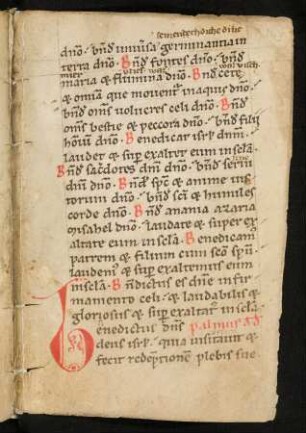 dno · bnd uniusa germinantia in
terra dno · Bnd fontes dno · bnd
maria & flumina dno · Bnd cete
& omia que mouent in aquis dno ·
bnd oms uolucres celi dno · Bnd
oms bestie & peccora dno · bnd filii
hoim dno · Benedicat isrl dnm ·
laudet & sup exaltet eum in scla ·
Bnd sacdotes dni dno · bnd serui
dni dno · Bnd spc & anime ius
torum dno · bnd sci & humiles
corde dno · Bnd anania azaria
misahel dno · laudate & super ex
altate eum in scla · Benedicam
patrem & filium cum sco spu ·
laudem & sup exaltemus eum
in scla · Bndictus es dne in fir
mamento celi · & laudabilis &
gloriosus & sup exaltat in scla
Benedictus dns
deus isrl · quia uisitauit &
fecit redeptionem plebis sue